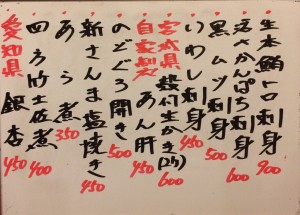 生本鮪トロ刺身 900
活かんぱち刺身 600
黒ムツ刺身 500
いわし刺身 450
宮城県 殻付生かき(2ヶ) 600
自家製 あん肝 450
のどぐろ開き 500
新さんま塩焼き 450
あら煮 350
四方竹土佐煮 400
愛知県 銀杏 450